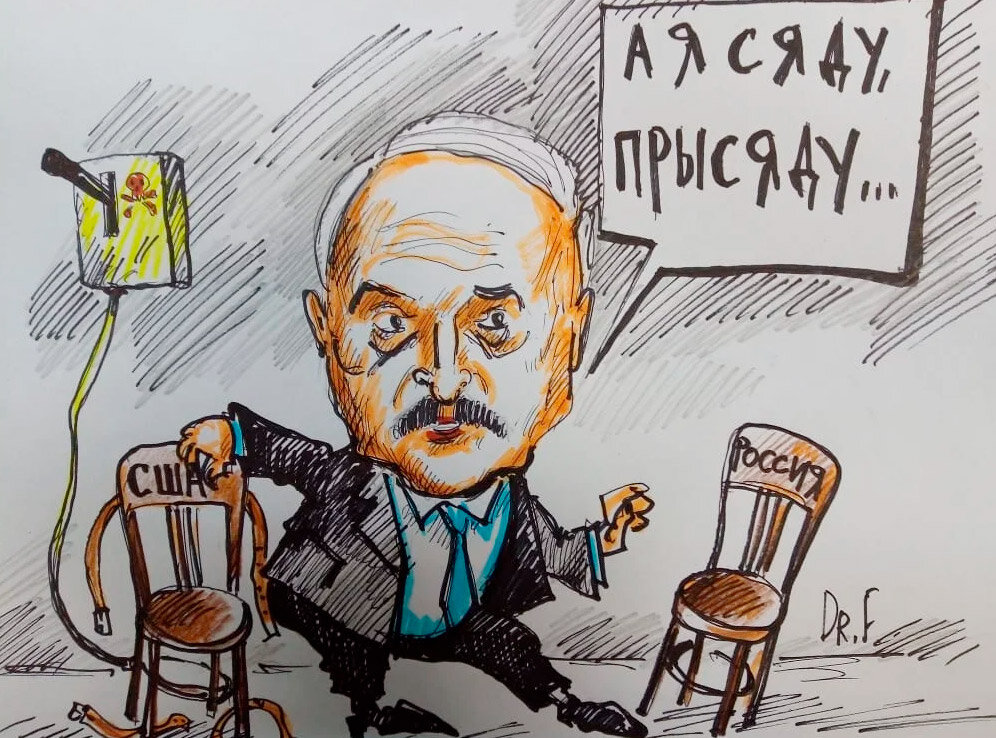 А Я СЯДУ,
ПРЫСЯДУ...
США
РОССИЯ
DR.F.